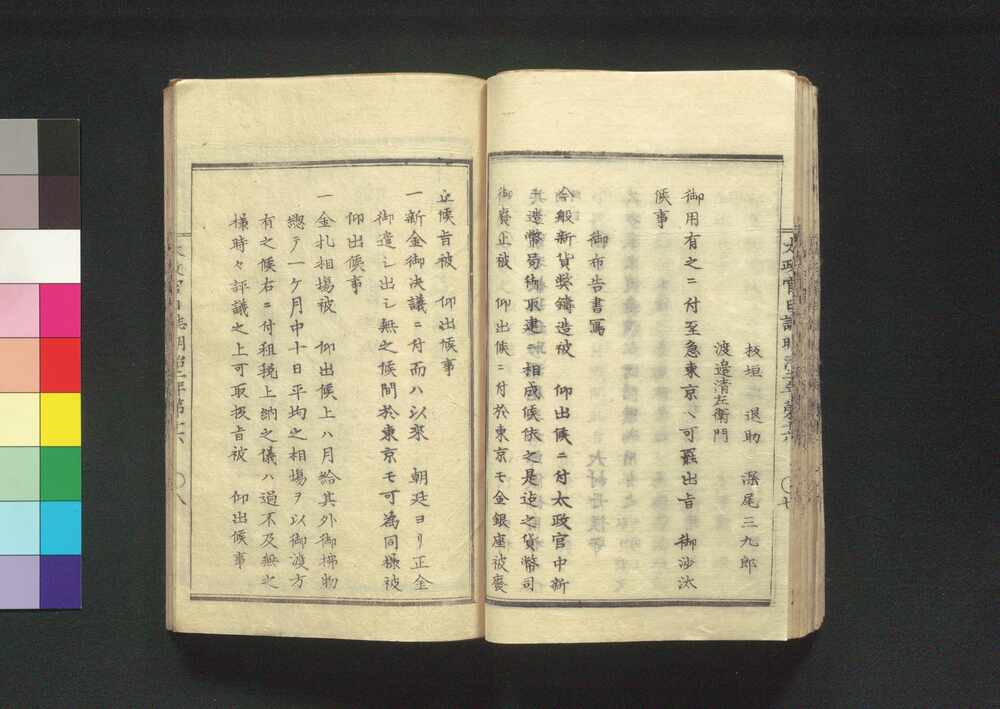 板垣 退助 深尾三九郎
渡邉清左衛門
御用有之ニ付至急東京ヘ可罷出旨 御沙汰
候事
御布告書寫
今般新貨弊鑄造被 仰出候ニ付太政官中新
ニ造幣局御取建ニ相成候依之是迄之貨幣司
御廢止被 仰出候ニ付於東京モ金銀座被廢
止候旨被 仰出候事
一新金御決議ニ付而ハ以來 朝廷ヨリ正金
御遣シ出シ無之候間於東京モ可為同樣被
仰出候事
一金札相場被 仰出候上ハ月給其外御拂物
總テ一ケ月中十日平均之相場ヲ以御渡方
有之候右ニ付租税上納之儀ハ過不及無之
樣時々評議之上可取扱旨被 仰出候事
太政官日誌明治二年第六 〇七
太政官日誌明治二年第六 〇八